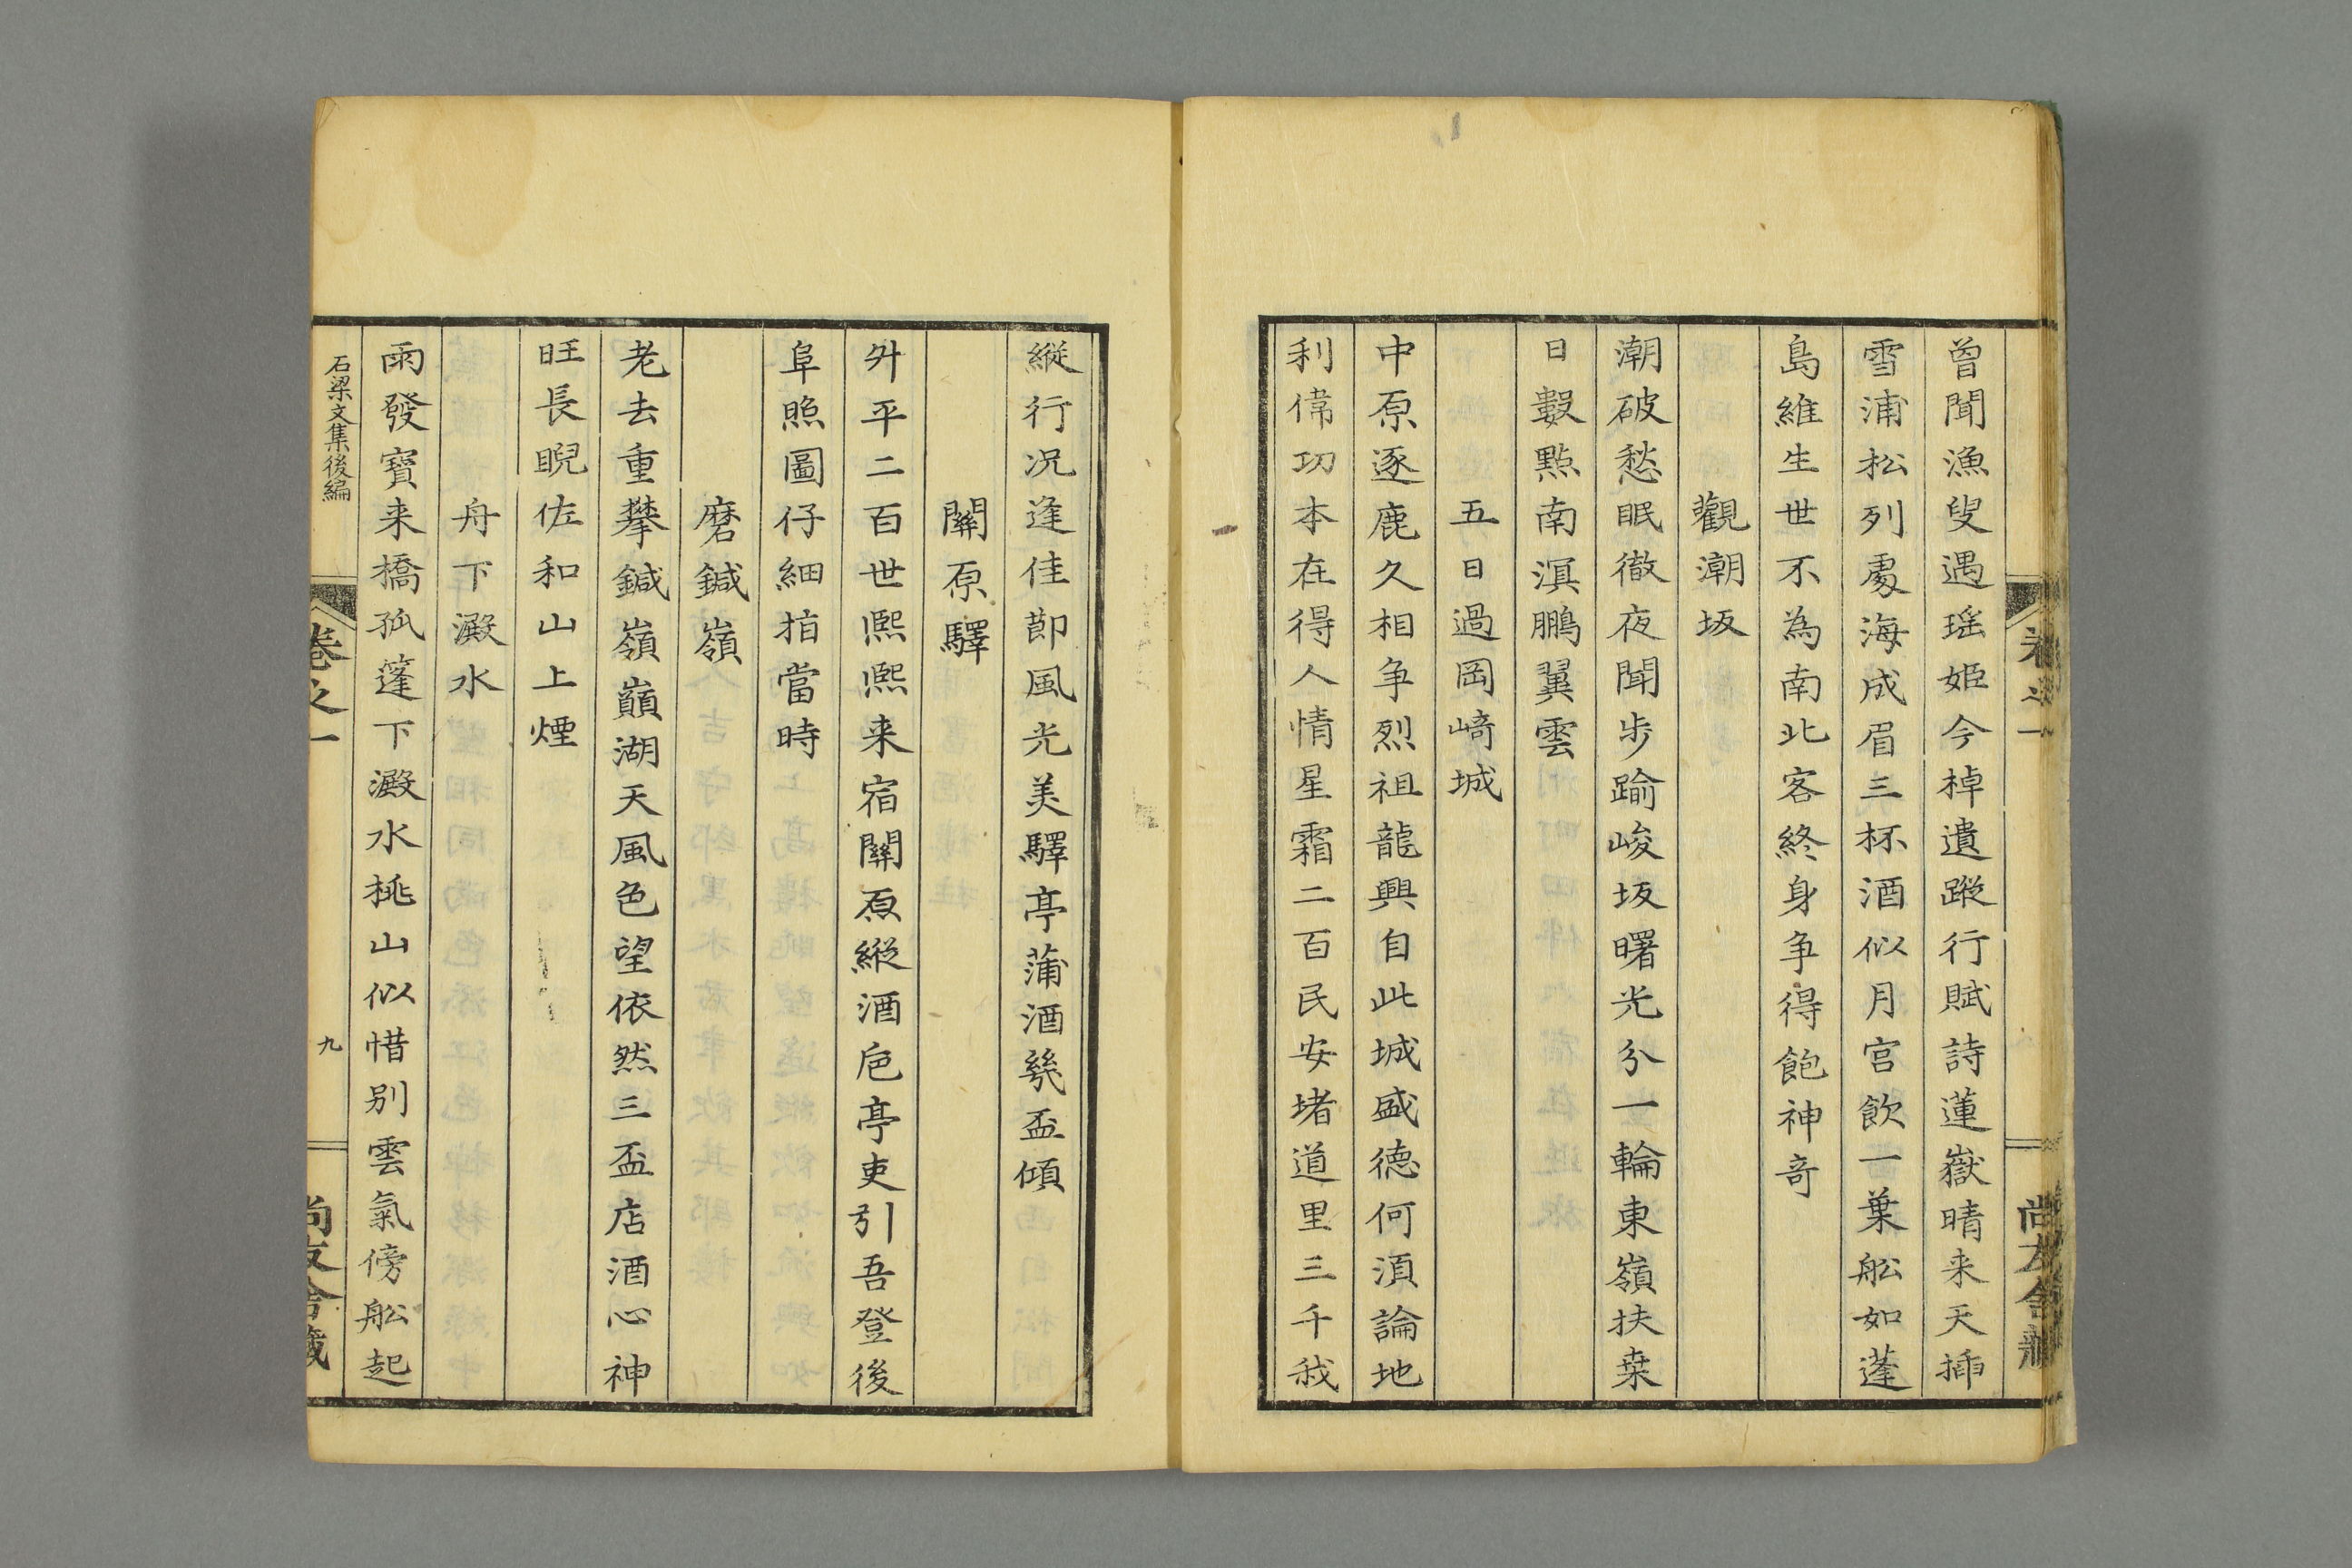 曽聞漁叟遇瑤姫今棹遺蹤行賦詩蓮嶽晴来天揷
雪浦松列處海成眉三杯酒似月宮飲一葉舩如蓬
島維生世不為南北客終身争得飽神奇
觀潮坂
潮破愁眠徹夜聞歩踰峻坂曙光分一輪東嶺扶桒
日數點南溟鵬翼雲
五日過岡﨑城
中原逐鹿久相争烈祖龍興自此城盛德何湏論地
利偉功本在得人情星霜二百民安堵道里三千我
縱行况逢佳節風光美驛亭蒲酒幾盃傾
關原驛
舛平二百世熈熈来宿關原縱酒巵亭吏引吾登後
阜照圖仔細指當時
磨鍼嶺
老去重攀鍼嶺巓湖天風色望依然三盃店酒心神
旺長睨佐和山上煙
舟下澱水
雨發寶来橋孤篷下澱水桃山似惜別雲氣傍舩起
石梁文集後編
卷之一
九
尚友舎藏